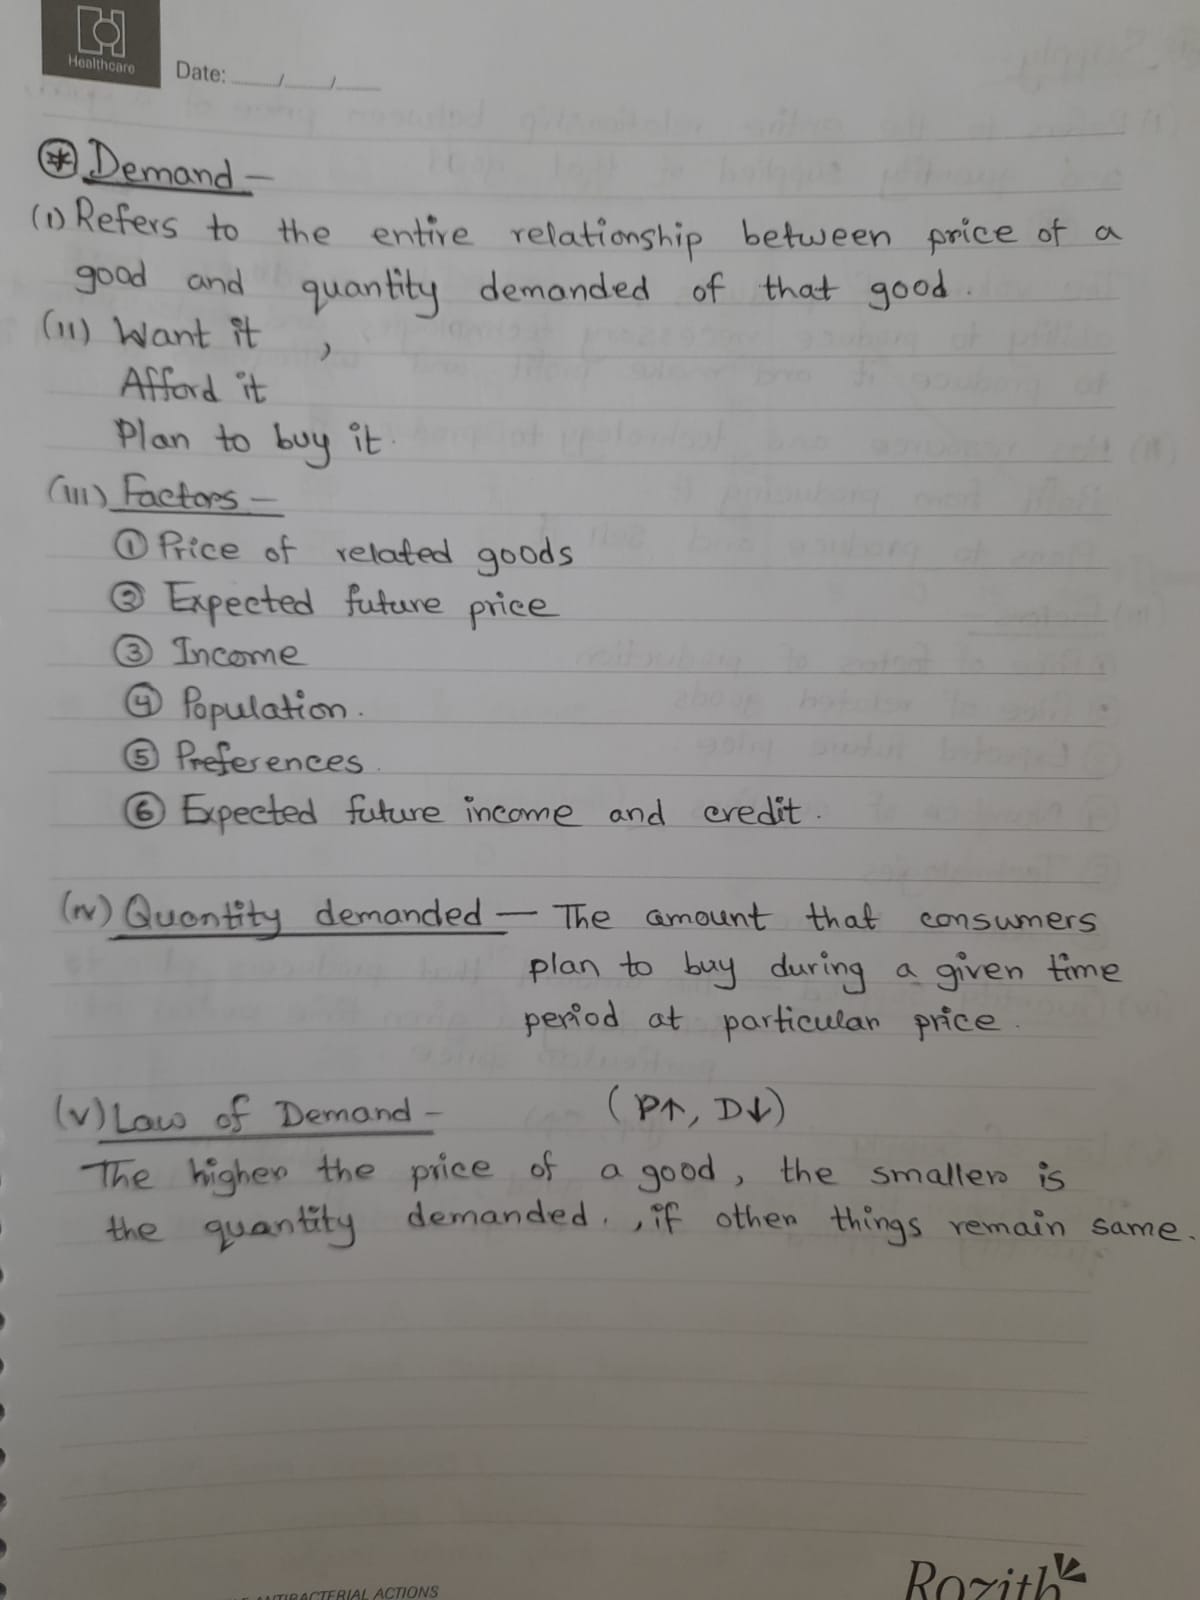 Healthcare
Date: ___/___/___
* Demand -
(i) Refers to the entire relationship between price of a
good and quantity demanded of that good.
(ii) Want it ,
Afford it
Plan to buy it.
(iii) Factors -
① Price of related goods
② Expected future price
③ Income
④ Population.
⑤ Preferences.
⑥ Expected future income and credit.
(iv) Quantity demanded - The amount that consumers
plan to buy during a given time
period at particular price.
(v) Law of Demand - (P↑, D↓)
The higher the price of a good, the smaller is
the quantity demanded. , if other things remain same.
ANTIBACTERIAL ACTIONS
Rozith